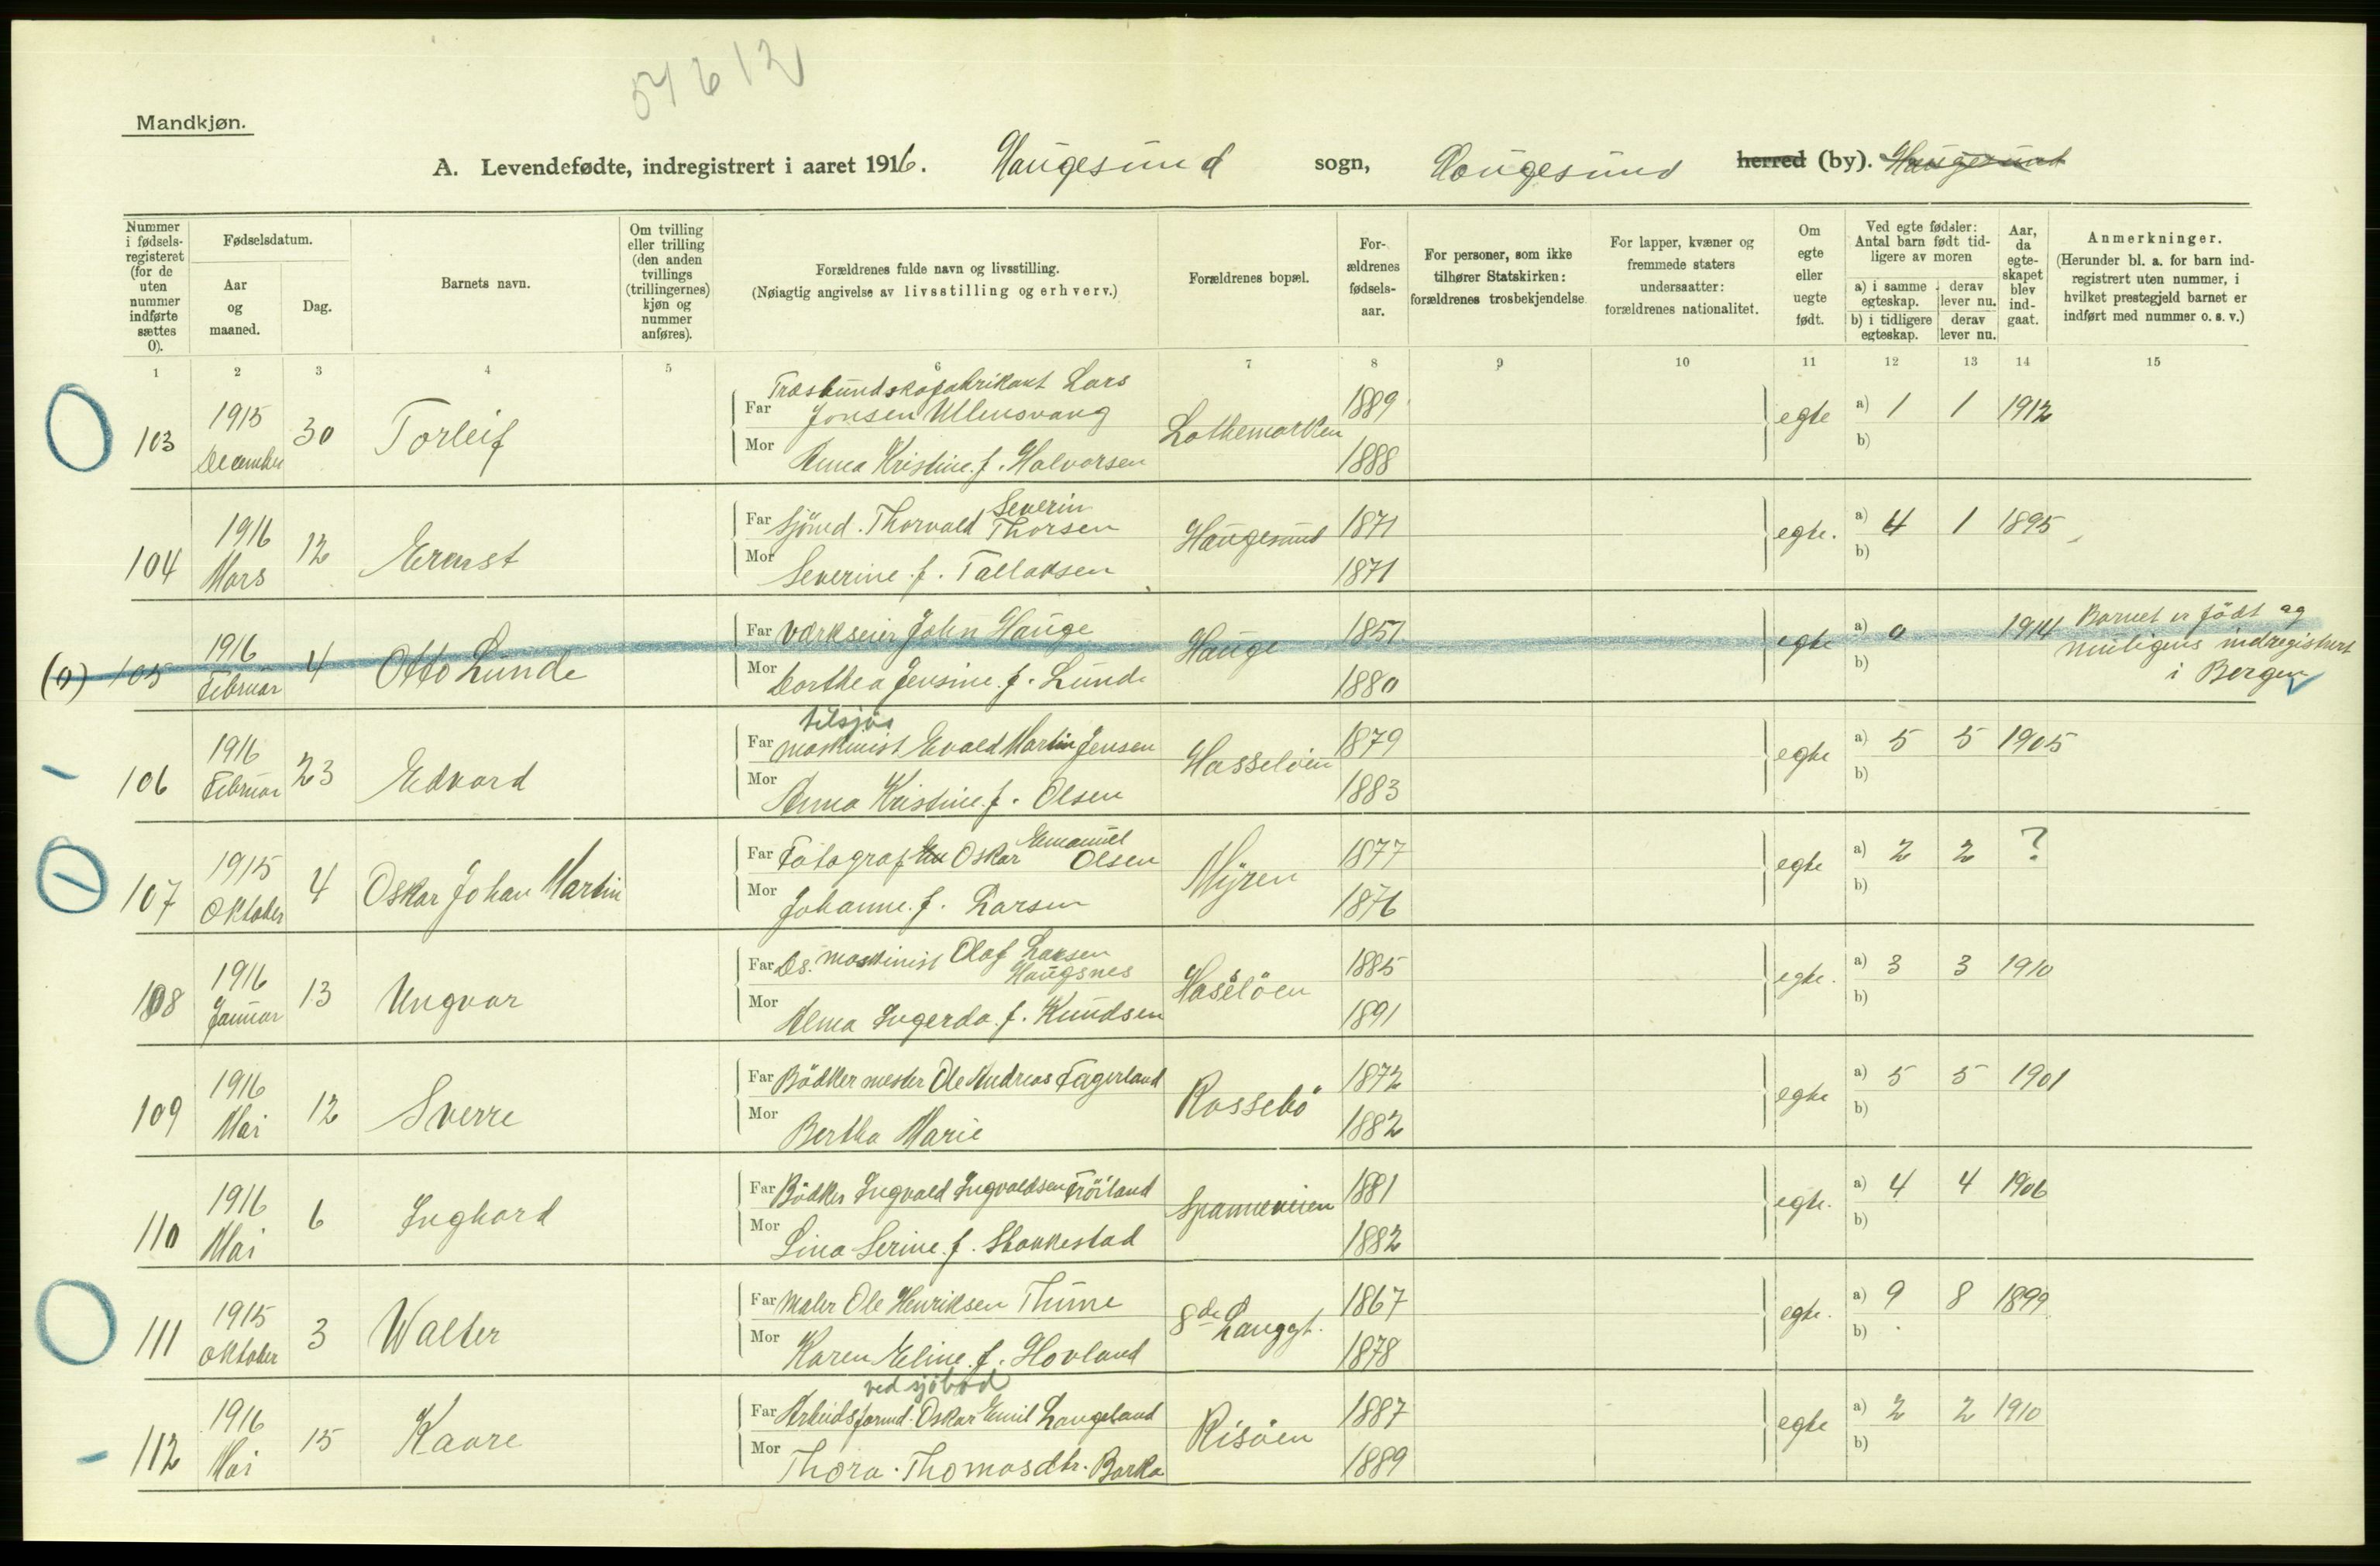 54612
Mandkjøn.
A. Levendefødte, indregistrert i aaret 1916. Haugesund sogn, Haugesund herred (by). Haugesund
Nummer i fødselsregisteret (for de uten nummer indførte sættes 0).
Fødselsdatum.
Aar og maaned.
Dag.
Barnets navn.
Om tvilling eller trilling (den anden tvillings (trillingernes) kjøn og nummer anføres).
Forældrenes fulde navn og livsstilling.
(Nøiagtig angivelse av livsstilling og erhverv.)
Forældrenes bopæl.
For-ældrenes fødsels-aar.
For personer, som ikke tilhører Statskirken: forældrenes trosbekjendelse
For lapper, kvæner og fremmede staters undersaatter: forældrenes nationalitet.
Om egte eller uegte født.
Ved egte fødsler: Antal barn født tidligere av moren
a) i samme egteskap. derav lever nu.
b) i tidligere egteskap. derav lever nu.
Aar, da egteskapet blev indgaat.
Anmerkninger.
(Herunder bl. a. for barn indregistrert uten nummer, i hvilket prestegjeld barnet er indført med nummer o. s. v.)
1 2 3 4 5 6 7 8 9 10 11 12 13 14 15
103 1915 December 30 Torleif
Far Træsbundskofabrikant Lars Jonsen Ullensvang 1889
Mor Anna Kristine f. Halvorsen 1888
Lothemarken egte a) 1 1 1912
b)
104 1916 Mars 12 Ernst
Far Sjømd. Thorvald Severin Thorsen 1871
Mor Severine f. Tallaksen 1871
Haugesund egte. a) 4 1 1895
b)
(0) 105 1916 Februar 4 Otto Lunde
Far Værkseier John Hauge 1851
Mor Dorthea Jensine f. Lunde 1880
Hauge egte a) 0 1914 Barnet er född og muligens indregistrert i Bergen
b)
106 1916 Februar 23 Edvard
Far maskinist tilsjøs Evald Martin Jensen 1879
Mor Anna Kristine f. Olsen 1883
Hasseløen egte a) 5 5 1905
b)
107 1915 Oktober 4 Oskar Johan Martin
Far Fotograf Oskar Emanuel Olsen 1877
Mor Johanne f. Larsen 1876
Myren egte a) 2 2 ?
b)
108 1916 Januar 13 Ungvar
Far Ds. maskinist Olaf Larsen Haugsnes 1885
Mor Alma Ingerda f. Knudsen 1891
Hasseløen egte. a) 3 3 1910
b)
109 1916 Mai 12 Sverre
Far Bødkermester Ole Andreas Fagerland 1872
Mor Bertha Marie 1882
Rossebø egte a) 5 5 1901
b)
110 1916 Mai 6 Inghard
Far Bødker Ingvald Ingvaldsen Frøiland 1881
Mor Lina Serine f. Stakkestad 1882
Spanneveien egte. a) 4 4 1906
b)
111 1915 Oktober 3 Walter
Far Maler Ole Henriksen Thime 1867
Mor Karen Eline f. Hovland 1878
8de Langgt. egte. a) 9 8 1899
b)
112 1916 Mai 15 Kaare
Far Arbeidsformd. ved sjøbod Oskar Emil Langeland 1887
Mor Thora Thomasdtr. Barka 1889
Risøen egte a) 2 2 1910
b)